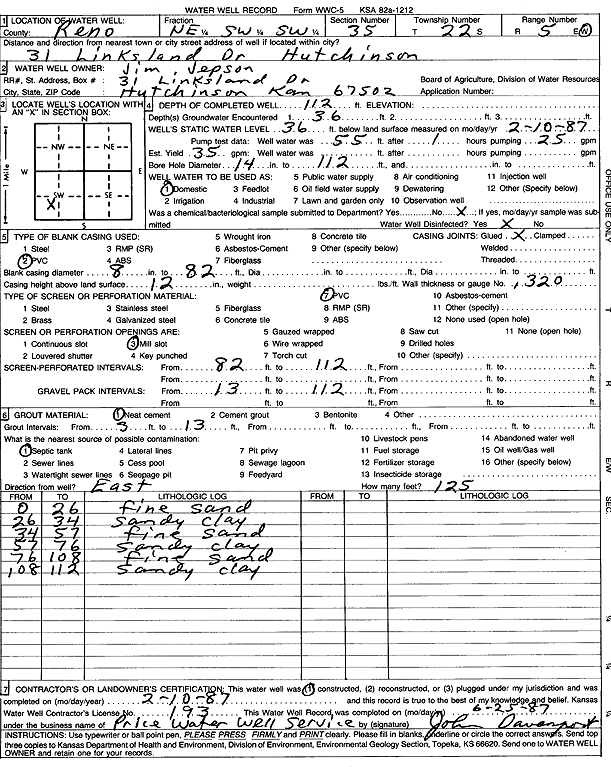 WATER WELL RECORD Form WWC-5 KSA 82a-1212
1 LOCATION OF WATER WELL: Fraction Section Number Township Number Range Number
County: Reno NE ¼ SW ¼ SW ¼ 35 T 22 S R 5 E(W)
Distance and direction from nearest town or city street address of well if located within city?
31 Linksland Dr Hutchinson
2 WATER WELL OWNER: Jim Jepson
RR#, St. Address, Box # : 31 Linksland Dr Board of Agriculture, Division of Water Resources
City, State, ZIP Code : Hutchinson Kan 67502 Application Number:
3 LOCATE WELL'S LOCATION WITH AN "X" IN SECTION BOX:
N
NW NE
W E
SW SE
X
S
1 Mile
4 DEPTH OF COMPLETED WELL 112 ft. ELEVATION:
Depth(s) Groundwater Encountered 1. 36 ft. 2. ft. 3. ft.
WELL'S STATIC WATER LEVEL 36 ft. below land surface measured on mo/day/yr 2-10-87
Pump test data: Well water was 55 ft. after 1 hours pumping 25 gpm
Est. Yield 35 gpm: Well water was ft. after hours pumping gpm
Bore Hole Diameter 14 in. to 112 ft., and in. to ft.
WELL WATER TO BE USED AS: 5 Public water supply 8 Air conditioning 11 Injection well
1 Domestic 3 Feedlot 6 Oil field water supply 9 Dewatering 12 Other (Specify below)
2 Irrigation 4 Industrial 7 Lawn and garden only 10 Observation well
Was a chemical/bacteriological sample submitted to Department? Yes No X; If yes, mo/day/yr sample was sub-
mitted Water Well Disinfected? Yes X No
5 TYPE OF BLANK CASING USED: 5 Wrought iron 8 Concrete tile CASING JOINTS: Glued X Clamped
1 Steel 3 RMP (SR) 6 Asbestos-Cement 9 Other (specify below) Welded
2 PVC 4 ABS 7 Fiberglass Threaded
Blank casing diameter 8 in. to 82 ft., Dia in. to ft., Dia in. to ft.
Casing height above land surface 12 in., weight lbs./ft. Wall thickness or gauge No. .320
TYPE OF SCREEN OR PERFORATION MATERIAL: 7 PVC 10 Asbestos-cement
1 Steel 3 Stainless steel 5 Fiberglass 8 RMP (SR) 11 Other (specify)
2 Brass 4 Galvanized steel 6 Concrete tile 9 ABS 12 None used (open hole)
SCREEN OR PERFORATION OPENINGS ARE: 5 Gauzed wrapped 8 Saw cut 11 None (open hole)
1 Continuous slot 3 Mill slot 6 Wire wrapped 9 Drilled holes
2 Louvered shutter 4 Key punched 7 Torch cut 10 Other (specify)
SCREEN-PERFORATED INTERVALS: From 82 ft. to 112 ft., From ft. to ft.
From ft. to ft., From ft. to ft.
GRAVEL PACK INTERVALS: From 13 ft. to 112 ft., From ft. to ft.
From ft. to ft., From ft. to ft.
6 GROUT MATERIAL: 1 Neat cement 2 Cement grout 3 Bentonite 4 Other
Grout Intervals: From 3 ft. to 13 ft., From ft. to ft., From ft. to ft.
What is the nearest source of possible contamination: 10 Livestock pens 14 Abandoned water well
1 Septic tank 4 Lateral lines 7 Pit privy 11 Fuel storage 15 Oil well/Gas well
2 Sewer lines 5 Cess pool 8 Sewage lagoon 12 Fertilizer storage 16 Other (specify below)
3 Watertight sewer lines 6 Seepage pit 9 Feedyard 13 Insecticide storage
Direction from well? East How many feet? 125
FROM TO LITHOLOGIC LOG FROM TO LITHOLOGIC LOG
0 26 fine sand
26 34 sandy clay
34 57 fine sand
57 76 sandy clay
76 108 fine sand
108 112 sandy clay
7 CONTRACTOR'S OR LANDOWNER'S CERTIFICATION: This water well was (1) constructed, (2) reconstructed, or (3) plugged under my jurisdiction and was
completed on (mo/day/year) 2-10-87 and this record is true to the best of my knowledge and belief. Kansas
Water Well Contractor's License No. 193 This Water Well Record was completed on (mo/day/yr) 6-25-87
under the business name of Price Water Well Service by (signature) John Davenport
INSTRUCTIONS: Use typewriter or ball point pen, PLEASE PRESS FIRMLY and PRINT clearly. Please fill in blanks, underline or circle the correct answers. Send top
three copies to Kansas Department of Health and Environment, Division of Environment, Environmental Geology Section, Topeka, KS 66620. Send one to WATER WELL
OWNER and retain one for your records.
OFFICE USE ONLY
T
R
E/W
SEC.
¼
¼
¼